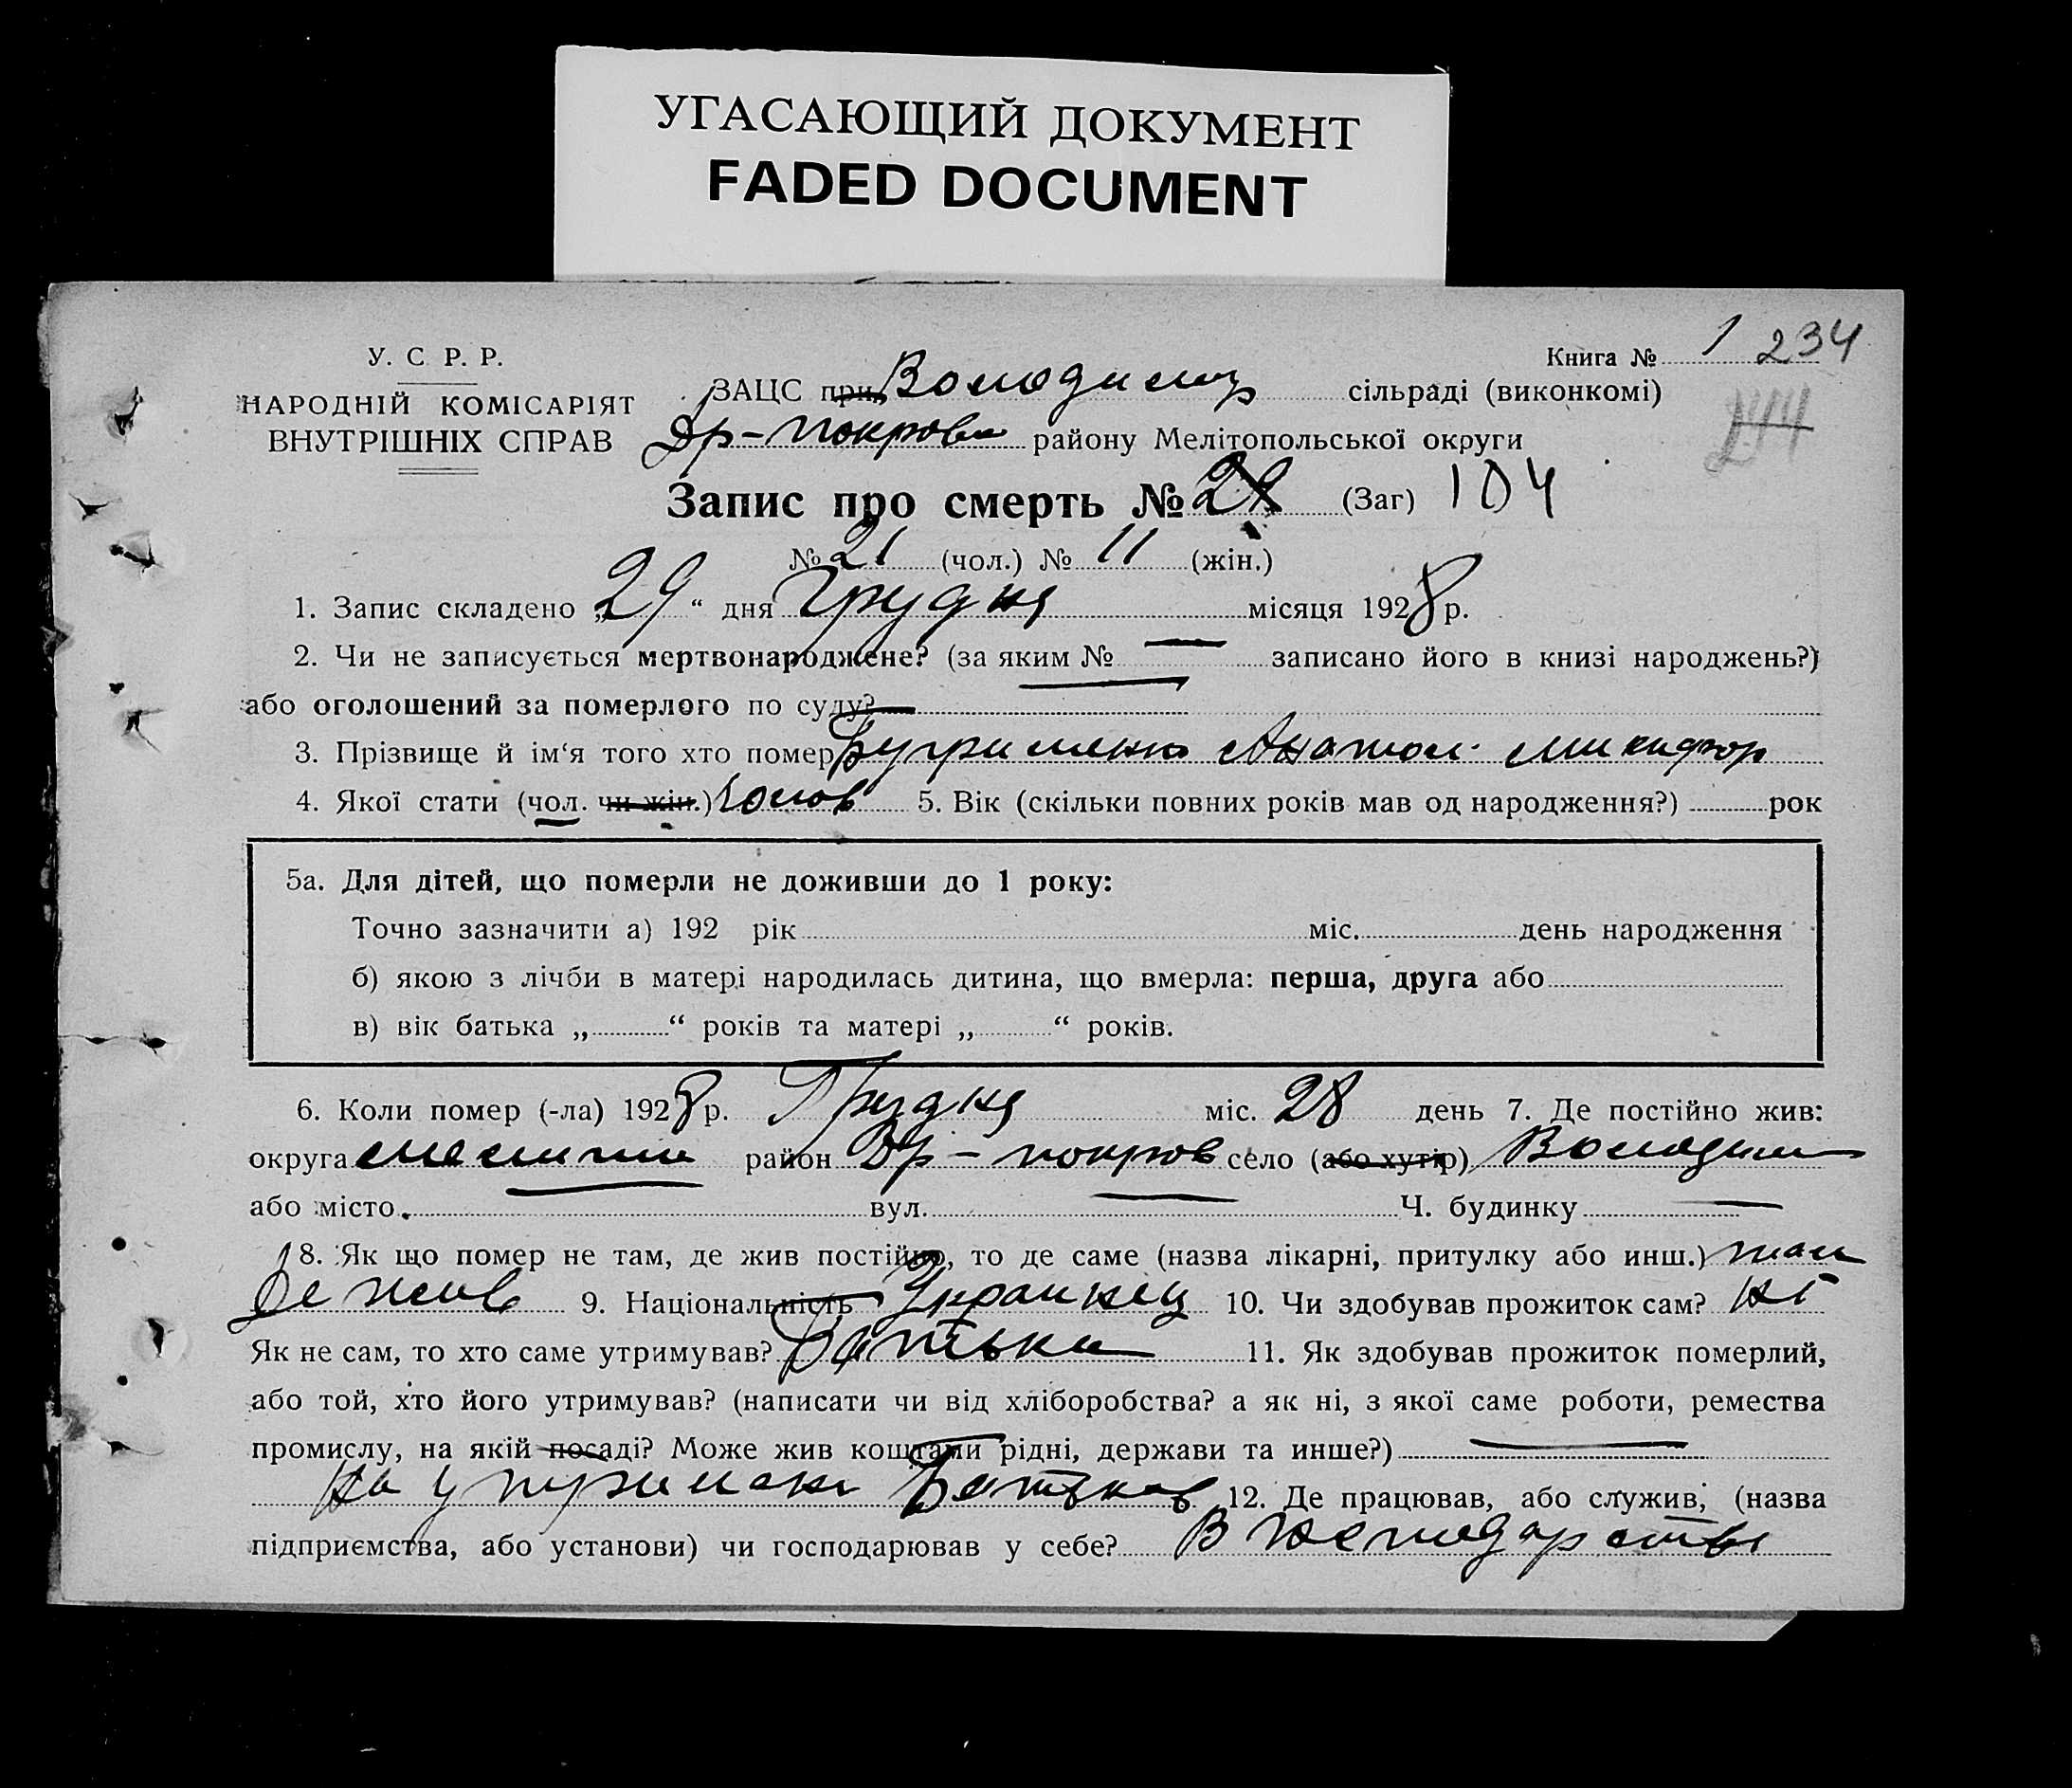 УГАСАЮЩИЙ ДОКУМЕНТ
FADED DOCUMENT
У. С. Р. Р.
НАРОДНІЙ КОМІСАРІЯТ
ВНУТРІШНІХ СПРАВ
Книга № 1 234
244
ЗАЦС при Володимир сільраді (виконкомі)
Др-Покровс району Мелітопольської округи
Запис про смерть № (Заг) 104
№ 21 (чол.) № 11 (жін.)
1. Запис складено „29“ дня Грудня місяця 1928 р.
2. Чи не записується мертвонароджене? (за яким № — записано його в книзі народжень?)
або оголошений за померлого по суду? —
3. Прізвище й ім‘я того хто помер Бугрименко Анатол Микифор
4. Якої стати (чол. чи жін.) Чолов 5. Вік (скільки повних років мав од народження?) рок
5а. Для дітей, що померли не доживши до 1 року:
Точно зазначити а) 192 рік міс. день народження
б) якою з лічби в матері народилась дитина, що вмерла: перша, друга або
в) вік батька „ “ років та матері „ “ років.
6. Коли помер (-ла) 1928 р. Грудня міс. 28 день 7. Де постійно жив:
округа район Др-покров село (або хутір) Володим
або місто. — вул. — Ч. будинку —
8. Як що помер не там, де жив постійно, то де саме (назва лікарні, притулку або инш.) там
де жив 9. Національність Українец 10. Чи здобував прожиток сам? Ні
Як не сам, то хто саме утримував? Батьки 11. Як здобував прожиток померлий,
або той, хто його утримував? (написати чи від хліборобства? а як ні, з якої саме роботи, ремества
промислу, на якій посаді? Може жив коштами рідні, держави та инше?) —
На утримані Батьков 12. Де працював, або служив, (назва
підприємства, або установи) чи господарював у себе? В господарстві